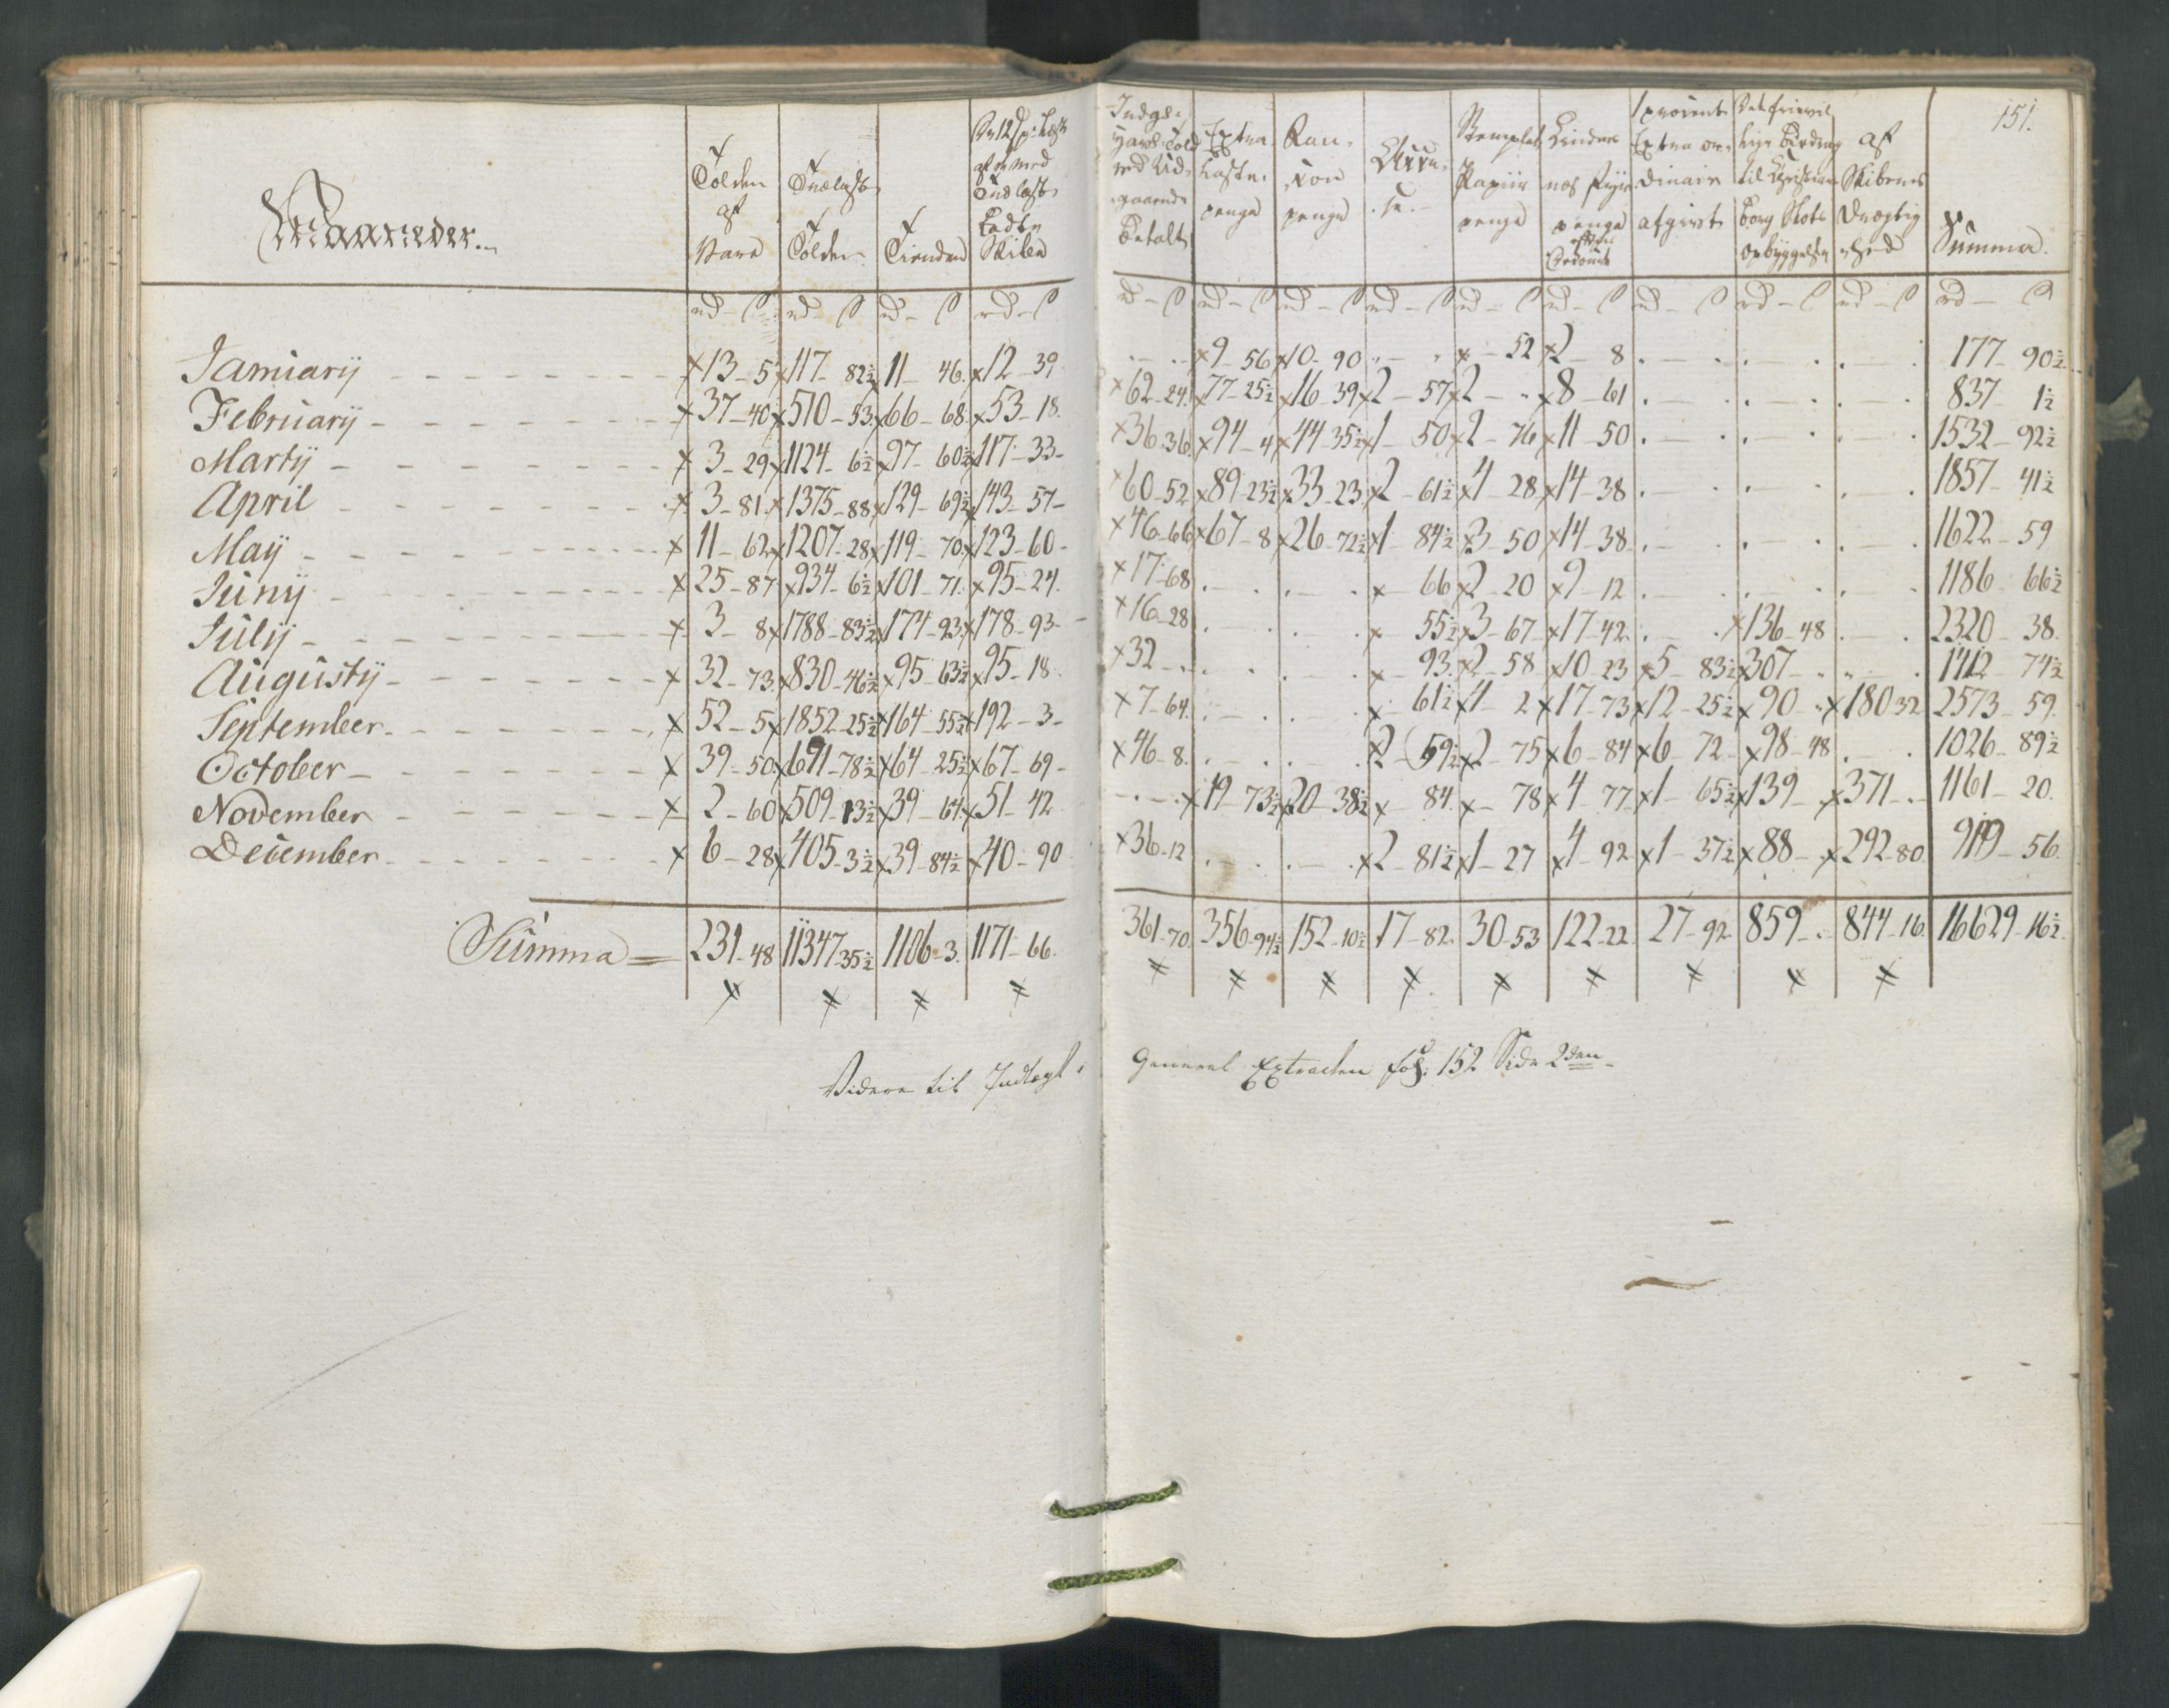 151.
Maaneder
Tolden af Vare
Trælast Tolden
Tienden
Extra Laste penge
Ran son penge
Stemplet Papiir penge
af Skibenes Drægtighed
Summa
rd – ß rd – ß rd – ß rd – ß rd – ß rd – ß rd – ß rd – ß rd – ß rd – ß rd – ß rd – ß rd – ß rd – ß
Januarij 13 – 5 117 – 82½ 11 – 46 12 – 39 . – . 9 – 56 10 – 90 . – . – 52 2 – 8 . – . . – . . – . 177 – 90½
Februarij 37 – 40 510 – 53 66 – 68 53 – 18 62 – 24 77 – 25½ 16 – 39 2 – 57 2 – . 8 – 61 . – . . – . . – . 837 – 1½
Martij 3 – 29 1124 – 6½ 97 – 60½ 117 – 33 36 – 36 94 – 4 44 – 35½ 1 – 50 2 – 76 11 – 50 . – . . – . . – . 1532 – 92½
April 3 – 81 1375 – 88 129 – 69½ 143 – 57 60 – 52 89 – 23½ 33 – 23 2 – 61½ 4 – 28 14 – 38 . – . . – . . – . 1857 – 41½
Maij 11 – 62 1207 – 28 119 – 70 123 – 60 46 – 66 67 – 8 26 – 72½ 1 – 84½ 3 – 50 14 – 38 . – . . – . . – . 1622 – 59
Junij 25 – 87 934 – 6½ 101 – 71 95 – 24 17 – 68 . – . . – . – 66 2 – 20 9 – 12 . – . . – . . – . 1186 – 66½
Julij 3 – 8 1788 – 83½ 174 – 93 178 – 93 16 – 28 . – . . – . – 55½ 3 – 67 17 – 42 . – . 136 – 48 . – . 2320 – 38
Augustij 32 – 73 830 – 46½ 95 – 63½ 95 – 18 32 – . . – . . – . – 93 2 – 58 10 – 23 5 – 83½ 307 – . . – . 1412 – 74½
September 52 – 5 1852 – 25½ 164 – 55½ 192 – 3 7 – 64 . – . . – . – 61½ 4 – 2 17 – 73 12 – 25½ 90 – . 180 – 32 2573 – 59
October 39 – 50 691 – 78½ 64 – 25½ 67 – 69 46 – 8 . – . . – . 2 – 59½ 2 – 75 6 – 84 6 – 72 98 – 48 . – . 1026 – 89½
November 2 – 60 509 – 13½ 39 – 64 51 – 42 . – . 19 – 73½ 20 – 38½ – 84 – 78 4 – 77 1 – 65½ 139 – . 371 – . 1161 – 20
December 6 – 28 405 – 3½ 39 – 84½ 40 – 90 36 – 12 . – . . – . 2 – 81½ 1 – 27 4 – 92 1 – 37½ 88 – . 292 – 80 919 – 56
Summa = 231 – 48 11347 – 35½ 1106 – 3 1171 – 66 361 – 70 356 – 94½ 152 – 10½ 17 – 82 30 – 53 122 – 22 27 – 92 859 – . 844 – 16 16629 – 16½
Videre til Indtægt i General Extracten fol: 152 Side 2den